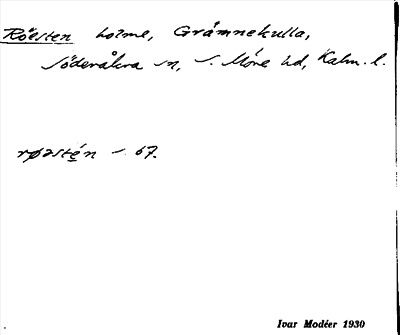 Röesten holme, Gråmnekulla,
Söderåkra sn, S. Möre hd, Kalm. l.
røəstén s. 67.
Ivar Modéer 1930